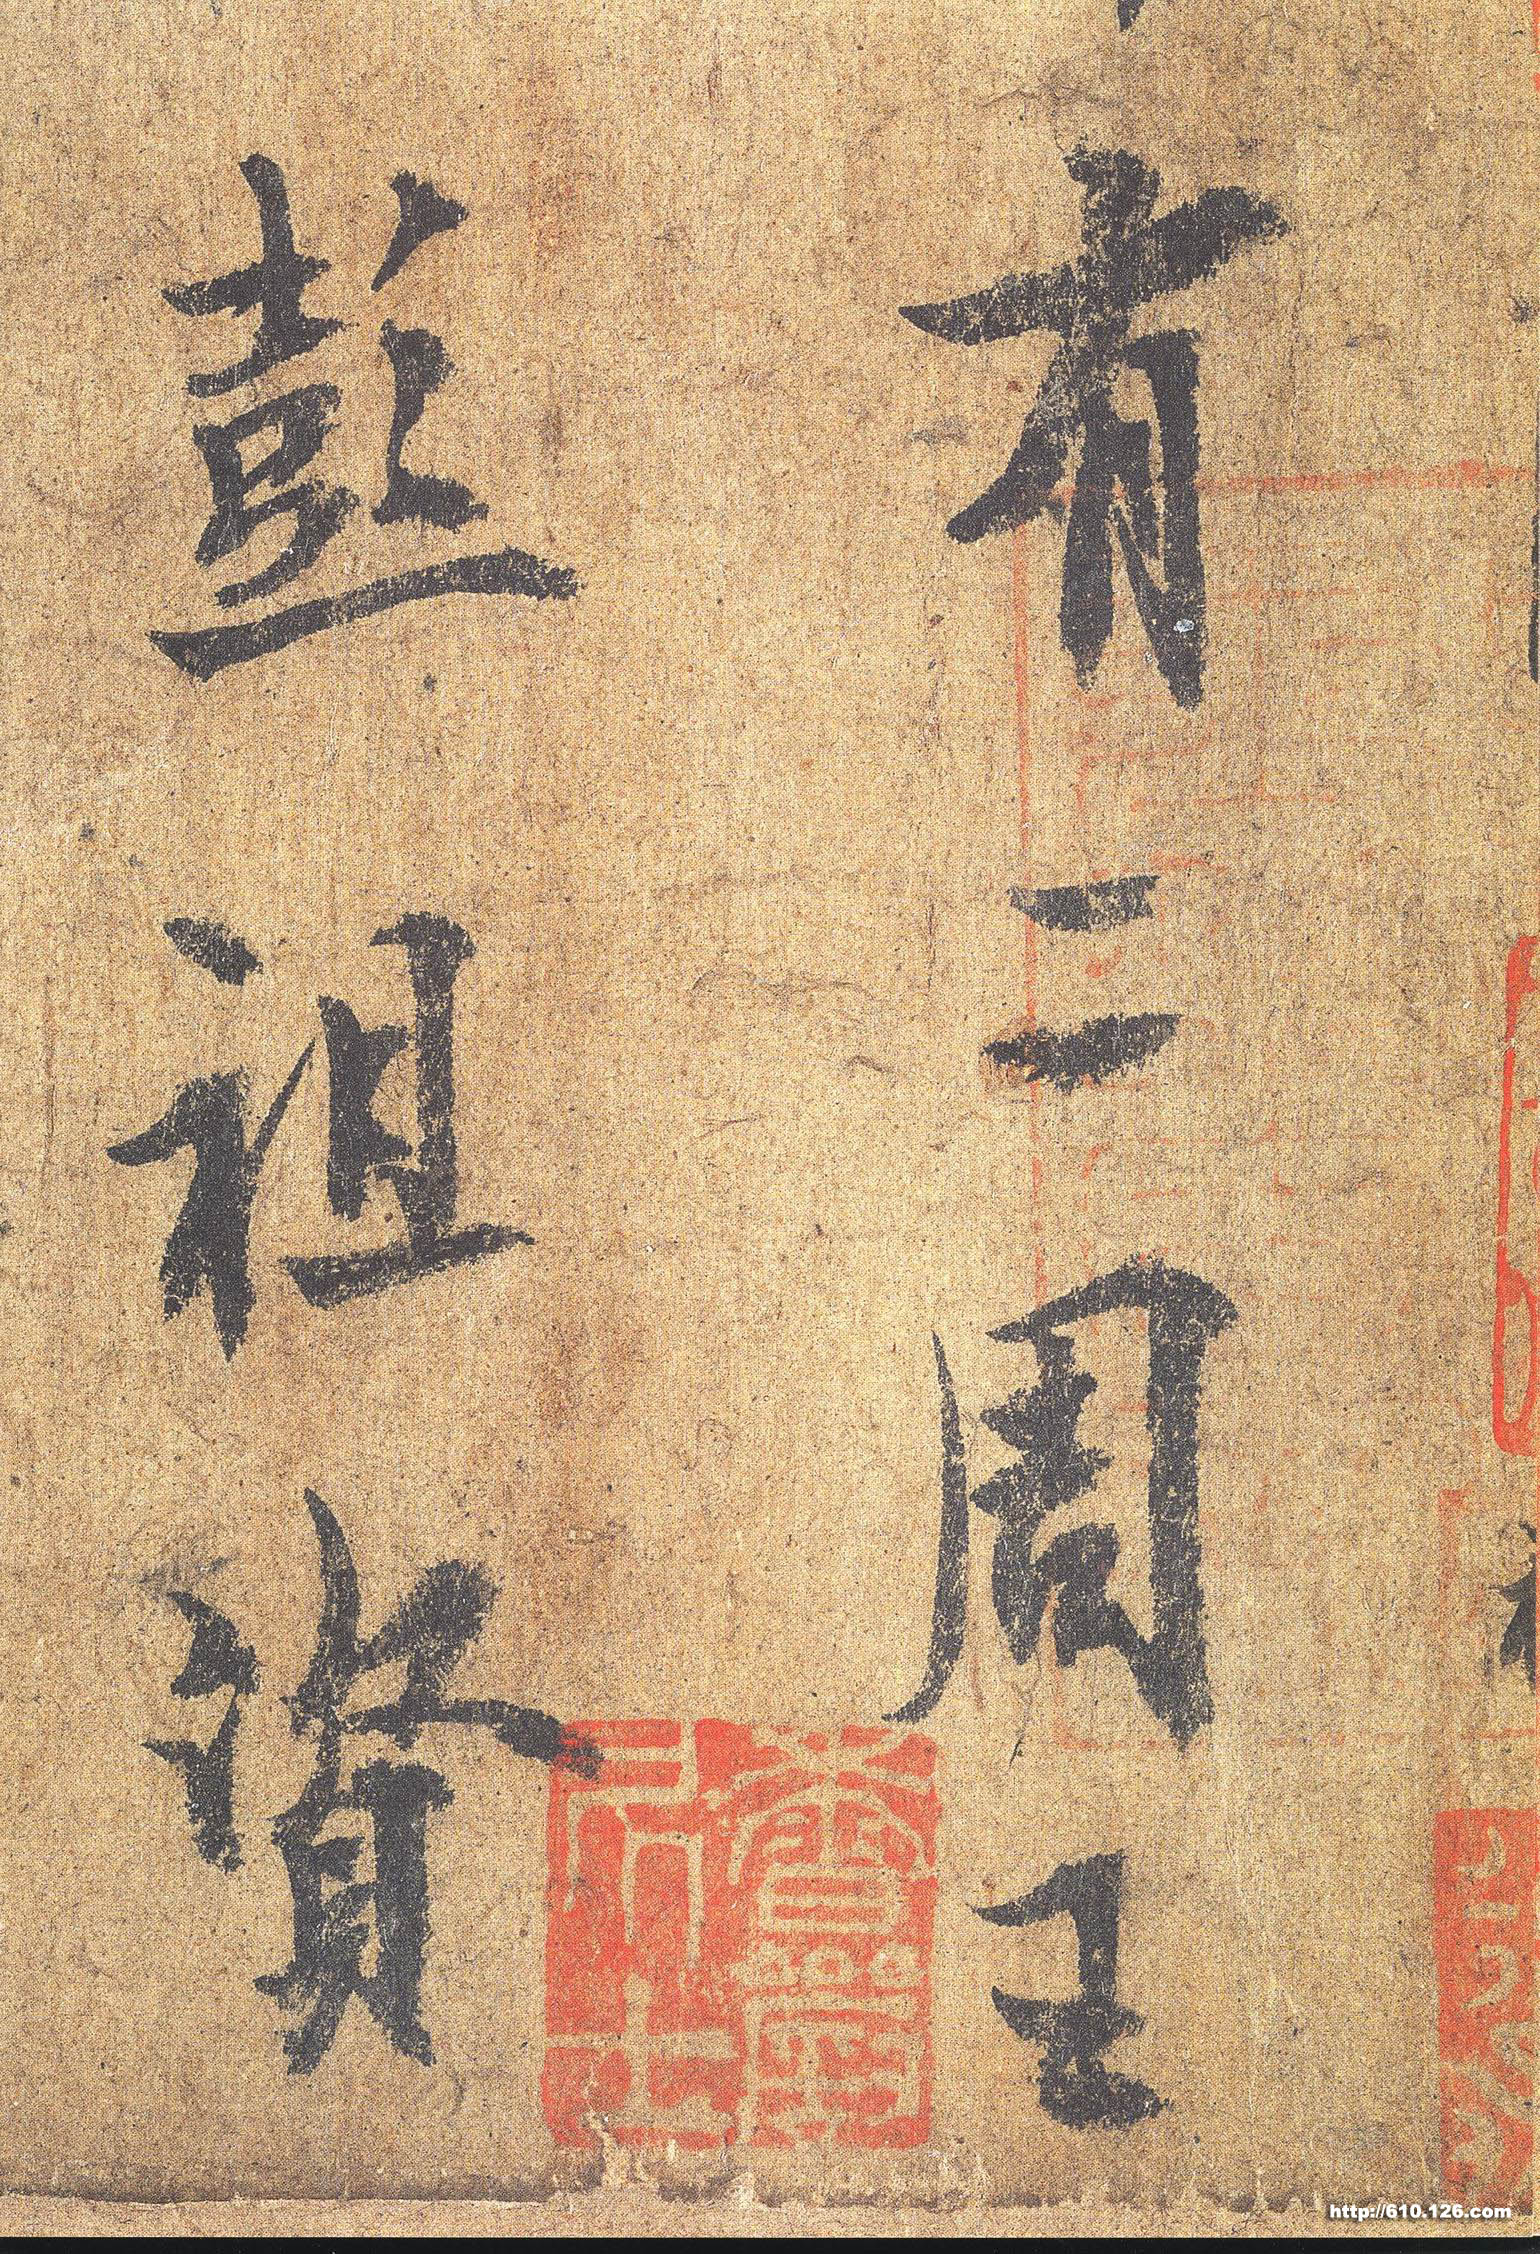 有二周王
彭祖資
http://610.126.com